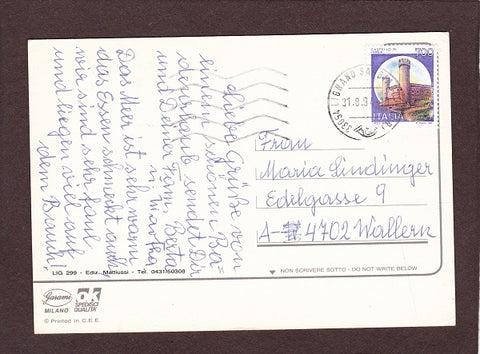 Liebe Grüße von
einem schönen Ba=
deurlaub sendet Dir
und Deiner Fam. Berta
u. Martha
Das Meer ist sehr warm
das Essen schmeckt auch,
wir sind sehr faul
und liegen viel auf
dem Bauch!
700
ITALIA
LIGNANO SA
31.8.9
33054
Frau
Maria Lindinger
Edelgasse 9
A-4702 Wallern
LIG 299 - Ediz. Mattiussi - Tel. 0431/50308
NON SCRIVERE SOTTO - DO NOT WRITE BELOW
Garami
MILANO
OK
SPEDISCI
QUALITÀ
© Printed in C.E.E.